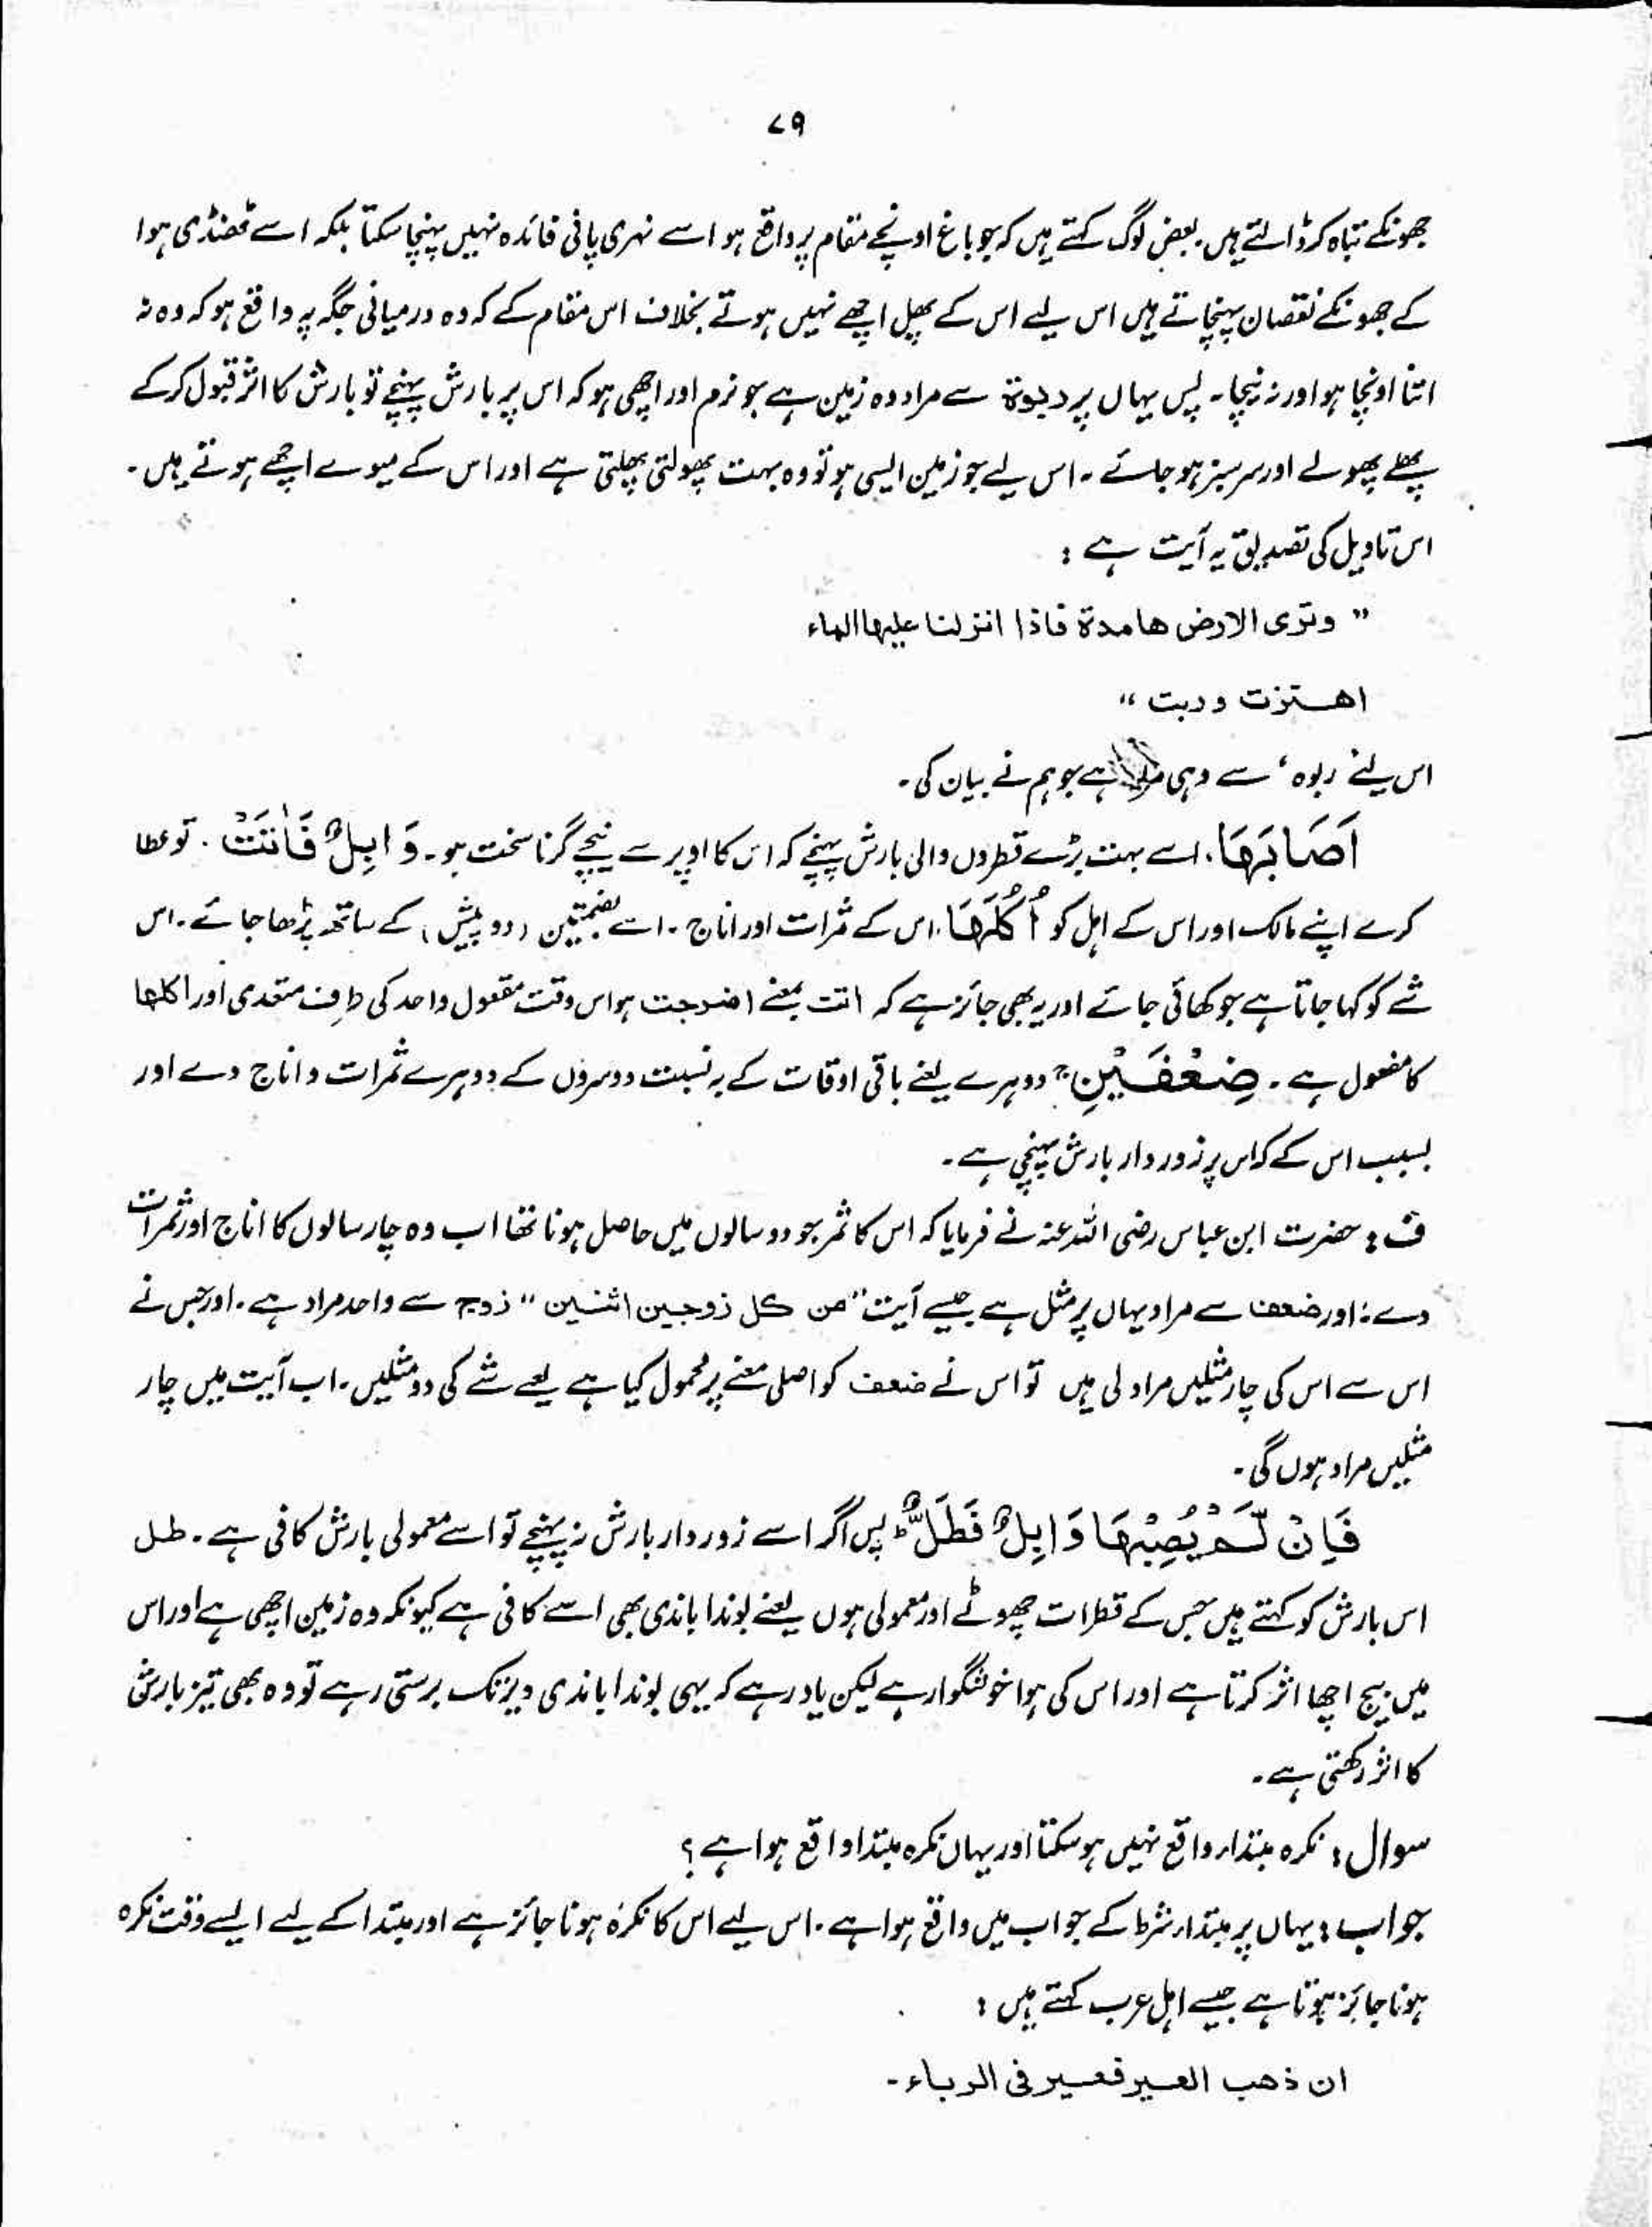 ۷۹
جھونکے تباہ کر ڈالتے ہیں۔ بعض لوگ کہتے ہیں کہ جو باغ اونچے مقام پر واقع ہو اسے نہری پانی فائدہ نہیں پہنچا سکتا بلکہ اسے ٹھنڈی ہوا
کے جھونکے نقصان پہنچاتے ہیں اس لیے اس کے پھل اچھے نہیں ہوتے بخلاف اس مقام کے کہ وہ درمیانی جگہ پہ واقع ہو کہ وہ نہ
اتنا اونچا ہو اور نہ نیچا۔ پس یہاں پر دبوۃ سے مراد وہ زمین ہے جو نرم اور اچھی ہو کہ اس پر بارش پہنچے تو بارش کا اثر قبول کر کے
پھلے پھولے اور سرسبز ہو جائے۔ اس لیے جو زمین ایسی ہو تو وہ بہت پھولتی پھلتی ہے اور اس کے میوے اچھے ہوتے ہیں۔
اس تاویل کی تصدیق یہ آیت ہے :
" وتری الارض ھامدۃ فاذا انزلنا علیھا الماء
اھتزت وربت "
اس لئے ربوہ ، سے وہی مراد ہے جو ہم نے بیان کی۔
اَصَابَهَا، اسے بہت بڑے قطروں والی بارش پہنچے کہ اس کا اوپر سے نیچے گرنا سخت ہو۔ وَابِلٌ فَاٰتَتْ۔ تو عطا
کرے اپنے مالک اور اس کے اہل کو اُكُلَهَا، اس کے ثمرات اور اناج۔ اسے بضمتین (دو پیش) کے ساتھ پڑھا جائے۔ اس
شے کو کہا جاتا ہے جو کھائی جائے اور یہ بھی جائز ہے کہ اتت بمعنے اخرجت ہو اس وقت مفعول واحد کی طرف متعدی اور اکلھا
کا مفعول ہے۔ ضِعْفَيْنِ ج دوہرے یعنے باقی اوقات کے بہ نسبت دوسروں کے دوہرے ثمرات و اناج دے اور
بسبب اس کے کہ اس پر زور دار بارش پہنچی ہے۔
ف : حضرت ابن عباس رضی اللہ عنہ نے فرمایا کہ اس کا ثمر جو دو سالوں میں حاصل ہونا تھا اب وہ چار سالوں کا اناج اور ثمرات
دے : اور ضعف سے مراد یہاں پر مثل ہے جیسے آیت "من کل زوجین اثنین" زوج سے واحد مراد ہے۔ اور جس نے
اس سے اس کی چار مثلیں مراد لی ہیں تو اس نے ضعف کو اصلی معنے پر محمول کیا ہے یعنے شے کی دو مثلیں۔ اب آیت میں چار
مثلیں مراد ہوں گی۔
فَاِنْ لَّمْ يُصِبْهَا وَابِلٌ فَطَلٌّ ط پس اگر اسے زور دار بارش نہ پہنچے تو اسے معمولی بارش کافی ہے۔ طل
اس بارش کو کہتے ہیں جس کے قطرات چھوٹے اور معمولی ہوں یعنے بوندا باندی بھی اسے کافی ہے کیونکہ وہ زمین اچھی ہے اور اس
میں بیج اچھا اثر کرتا ہے اور اس کی ہوا خوشگوار ہے لیکن یاد رہے کہ یہی بوندا باندی دیر تک برستی رہے تو وہ بھی تیز بارش
کا اثر رکھتی ہے۔
سوال : نکرہ مبتداء واقع نہیں ہو سکتا اور یہاں نکرہ مبتدا واقع ہوا ہے ؟
جواب : یہاں پر مبتداء شرط کے جواب میں واقع ہوا ہے۔ اس لیے اس کا نکرہ ہونا جائز ہے اور مبتدا کے لیے ایسے وقت نکرہ
ہونا جائز ہوتا ہے جیسے اہل عرب کہتے ہیں :
ان ذھب العیر فعیر فی الرباء۔